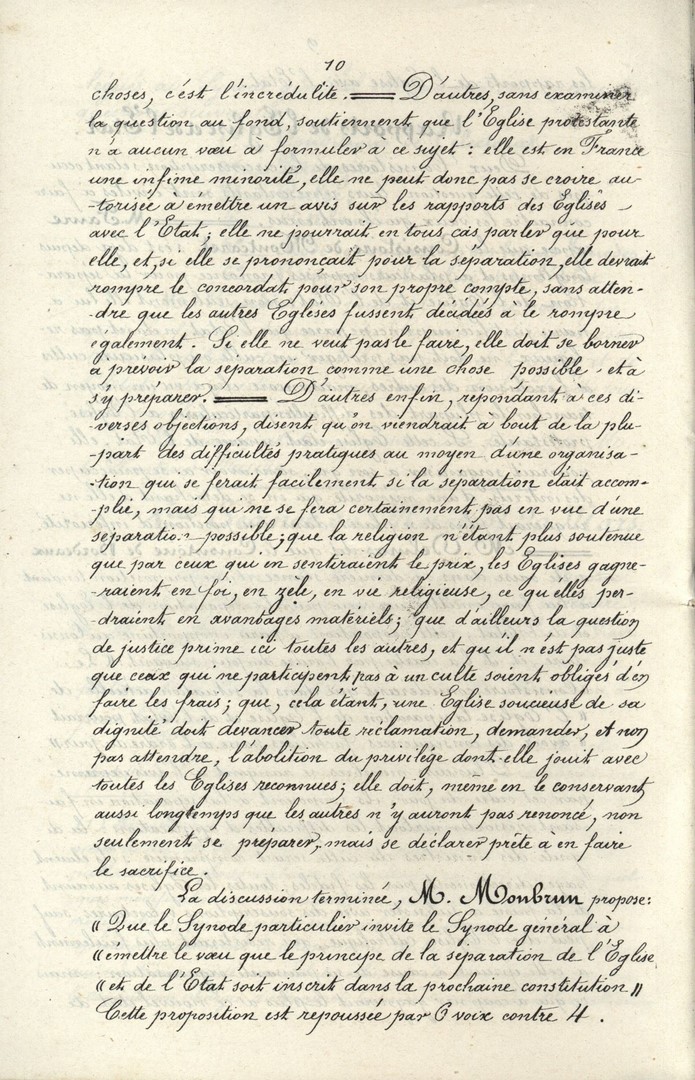 10
choses, c'est l'incrédulité. == D'autres, sans examiner
la question au fond, soutiennent que l'Eglise protestante
n'a aucun vœu à formuler à ce sujet : elle est en France
une infime minorité, elle ne peut donc pas se croire au-
-torisée à émettre un avis sur les rapports des Eglises -
avec l'Etat ; elle ne pourrait en tous cas parler que pour
elle, et, si elle se prononçait pour la séparation, elle devrait
rompre le concordat pour son propre compte, sans atten-
-dre que les autres Eglises fussent décidées à le rompre
également. Si elle ne veut pas le faire, elle doit se borner
à prévoir la séparation comme une chose possible et à
s'y préparer. == D'autres enfin, répondant à ces di-
-verses objections, disent qu'on viendrait à bout de la plu-
-part des difficultés pratiques au moyen d'une organisa-
-tion qui se ferait facilement si la séparation était accom-
-plie, mais qui ne se fera certainement pas en vue d'une
séparation possible ; que la religion n'étant plus soutenue
que par ceux qui en sentiraient le prix, les Eglises gagne-
-raient en foi, en zèle, en vie religieuse, ce qu'elles per-
-draient en avantages matériels ; que d'ailleurs la question
de justice prime ici toutes les autres, et qu'il n'est pas juste
que ceux qui ne participent pas à un culte soient obligés d'en
faire les frais ; que, cela étant, une Eglise soucieuse de sa
dignité doit devancer toute réclamation, demander, et non
pas attendre, l'abolition du privilège dont elle jouit avec
toutes les Eglises reconnues ; elle doit, même en le conservant
aussi longtemps que les autres n'y auront pas renoncé, non
seulement se préparer, mais se déclarer prête à en faire
le sacrifice.
La discussion terminée, M. Monbrun propose :
« Que le Synode particulier invite le Synode général à
« émettre le vœu que le principe de la séparation de l'Eglise
« et de l'Etat soit inscrit dans la prochaine constitution »
Cette proposition est repoussée par 6 voix contre 4.